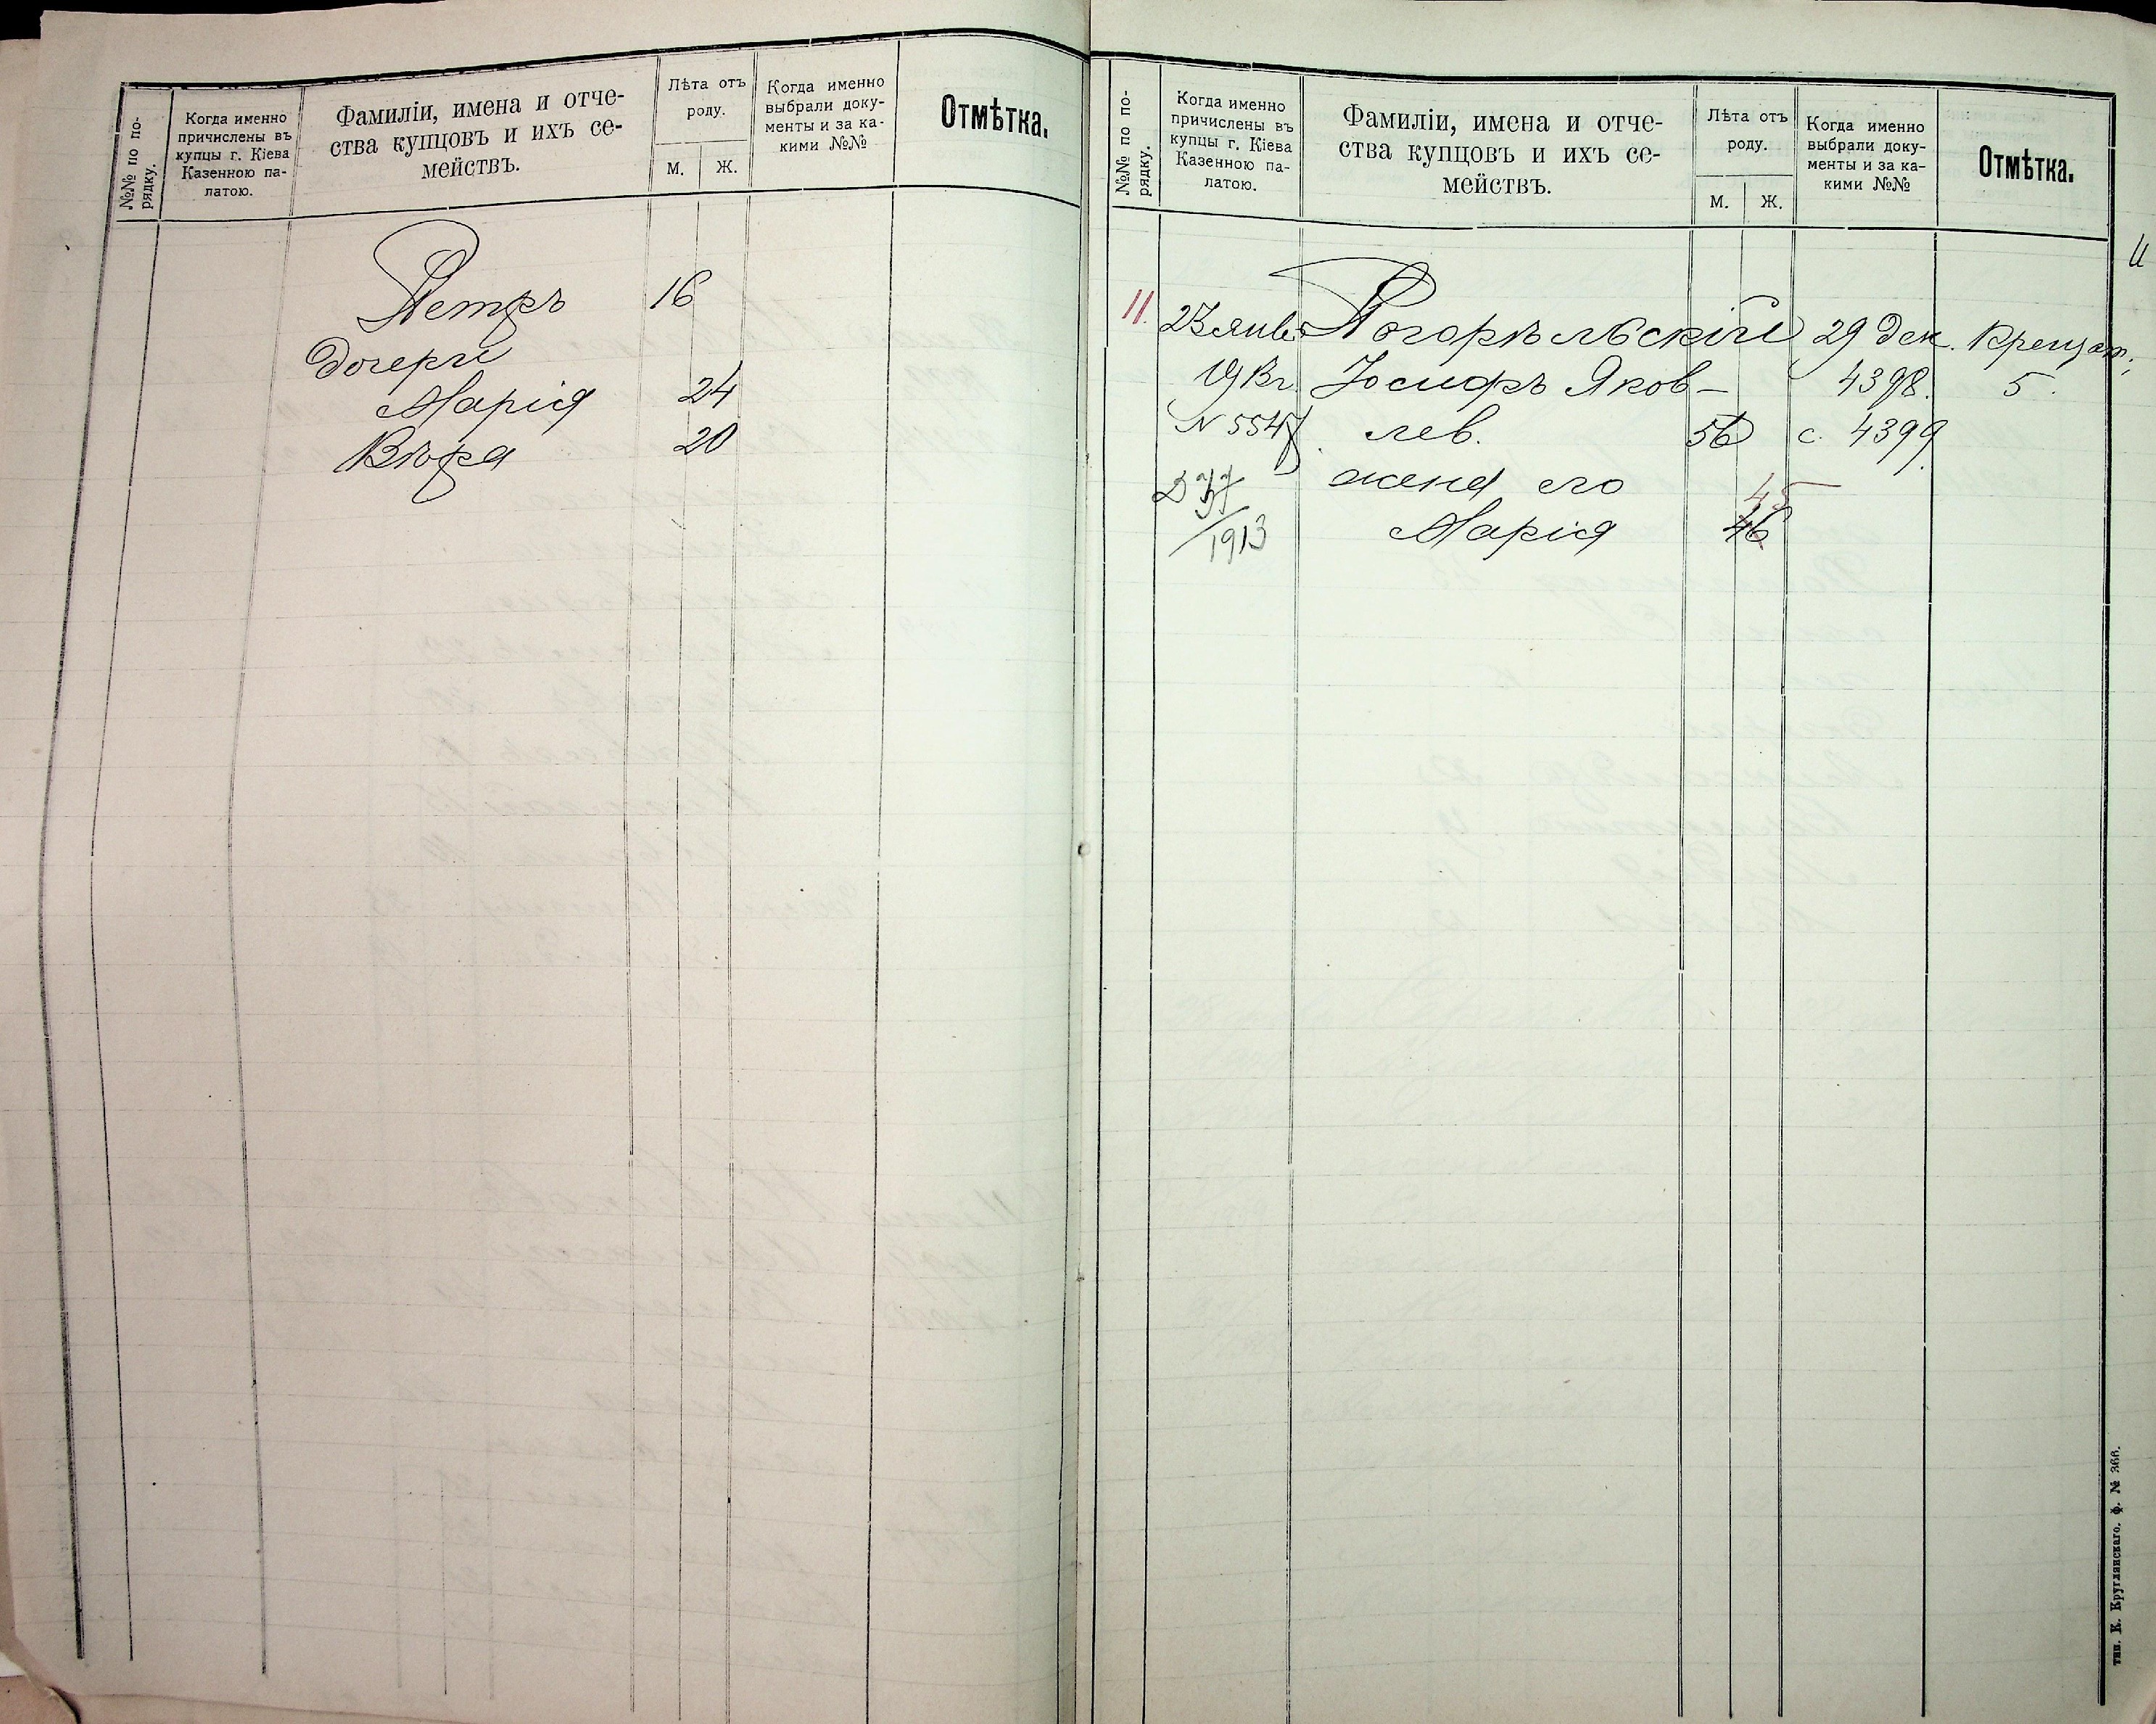 №№ по по-
рядку.
Когда именно
причислены въ
купцы г. Кіева
Казенною па-
латою.
Фамиліи, имена и отче-
ства купцовъ и ихъ се-
мействъ.
Лѣта отъ
роду.
М. Ж.
Когда именно
выбрали доку-
менты и за ка-
кими №№
Отмѣтка.
Петръ 16
дочери
Марія 24
Вѣра 20
№№ по по-
рядку.
Когда именно
причислены въ
купцы г. Кіева
Казенною па-
латою.
Фамиліи, имена и отче-
ства купцовъ и ихъ се-
мействъ.
Лѣта отъ
роду.
М. Ж.
Когда именно
выбрали доку-
менты и за ка-
кими №№
Отмѣтка.
11
11. 23 янв. Погорѣльскій 29 дек. Крещат.
Іосифъ Яков- 4398. 5.
N 5547 лев. 56 с. 4399
жена его 45
1913 Марія 46
тип. К. Круглянскаго. ф. № 366.